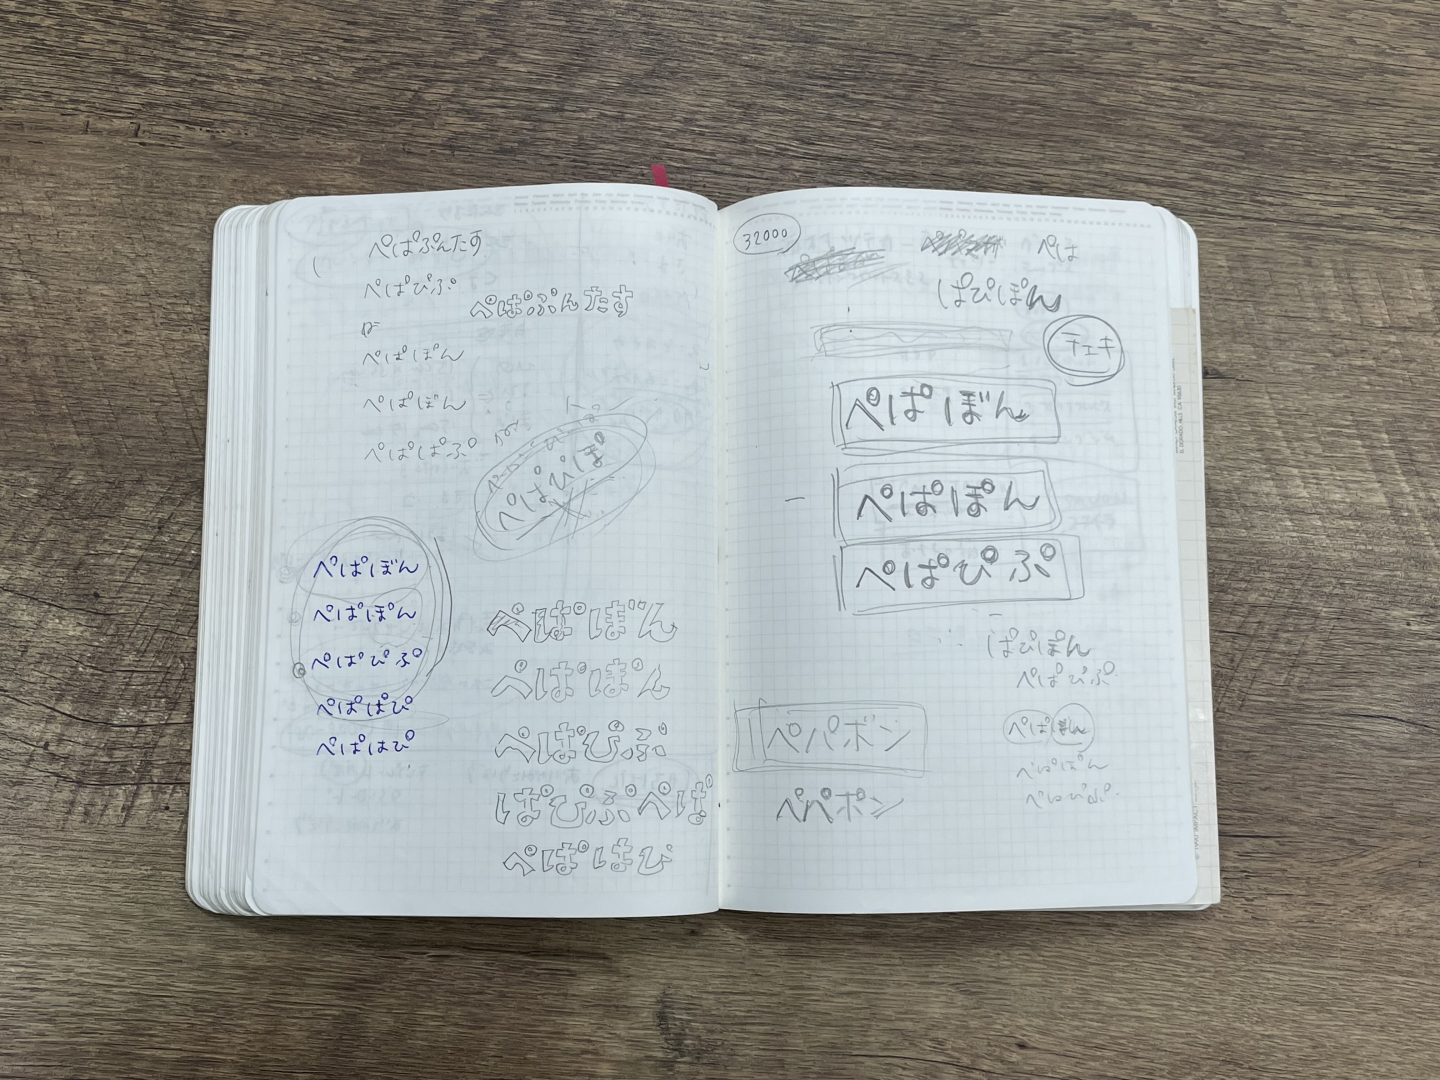 ぺぱぷんたす
ぺぱぴぷ
ぺぱぽん
ぺぱぼん
ぺぱぱぷ
ぺぱぷんたす
ぺぱぴぽ
ぺぱぼん
ぺぱぽん
ぺぱぴぷ
ぺぱぱぴ
ぺぱはぴ
ぺぱぼん
ぺぱぽん
ぺぱぴぷ
ぱぴぷぺぱ
ぺぱはぴ
32000
ぺは
ぱぴぽん
チェキ
ぺぱぼん
ぺぱぽん
ぺぱぴぷ
ぱぴぽん
ぺぱぴぷ
ペパボン
ペパポン
ぺぱぼん
ぺぱぽん
ぺぱぴぷ